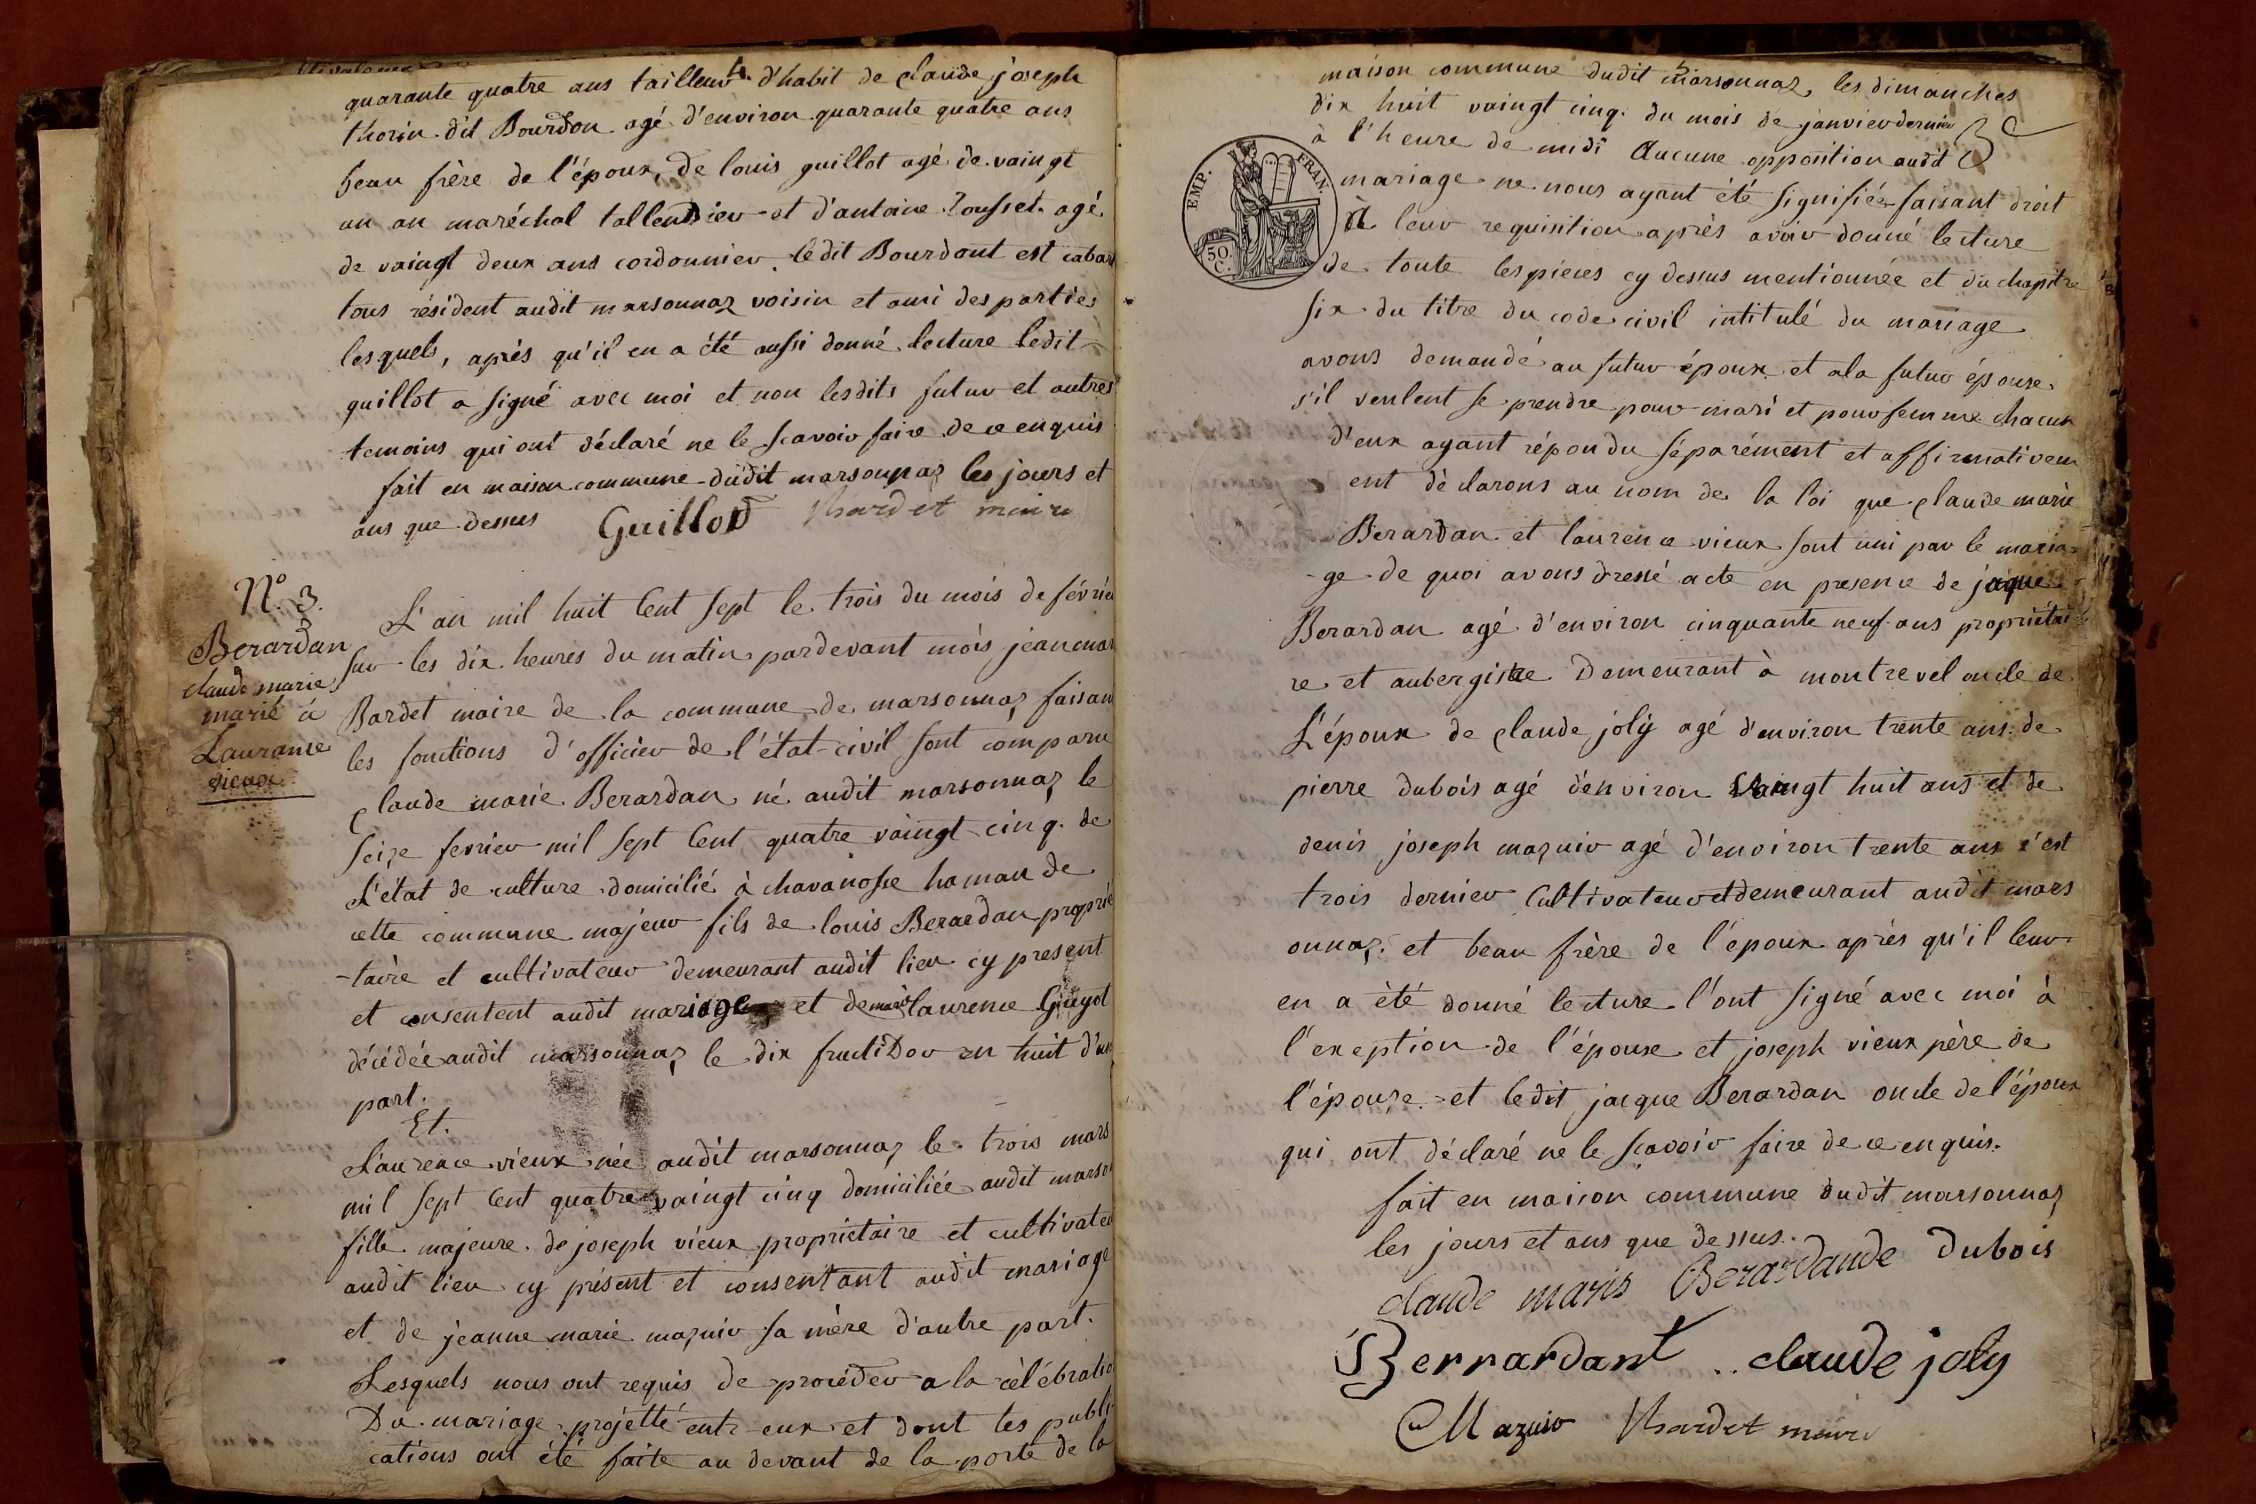 quarante quatre ans tailleur d'habit de claude joseph
thorin dit Bourdon agé d'environ quarante quatre ans
beau frère de l'époux, de louis guillot agé de vaingt
un an maréchal tallendier et d'antoine Rousset agé
de vaingt deux ans cordonnier. ledit Bourdont est cabar
tous résident audit marsonnaz voisin et ami des parties
lesquels, après qu'il en a été aussi donné lecture ledit
guillot a signé avec moi et non lesdits futur et autres
temoins qui ont déclaré ne le scavoir faire de ce enquis
fait en maison commune dudit marsonnaz les jours et
ans que dessus Guillod Bardet maire
N.° 3.
Berardan
claude marie
marié à
Laurance
vieux
L'an mil huit Cent sept le trois du mois de févrie
sur les dix heures du matin pardevant mois jean mar
Bardet maire de la commune de marsonnaz faisan
les fonctions d'officier de l'état-civil sont comparu
claude marie Berardan né audit marsonnaz le
seize fevrier mil sept Cent quatre vaingt cinq. de
L'état de culture domicilié à chavanosse hamau de
cette commune majeur fils de louis Berardan proprié
-taire et cultivateur demeurant audit lieu cy present
et consentent audit mariage et de marie laurence Guyot
décédée audit marsonnaz le dix fructidor en huit d'un
part.
Et.
Laurence vieux née audit marsonnaz le trois mars
mil sept Cent quatre vaingt cinq domiciliée audit marson
fille majeure de joseph vieux propriétaire et cultivateu
audit lieu cy présent et consentant audit mariage
et de jeanne marie mazuir sa mère d'autre part.
Lesquels nous ont requis de procéder a la célébratio
Du mariage projetté entr eux et dont les publi
cations ont été faite au devant de la porte de la
maison commune dudit marsonnaz, les dimanches
dix huit vaingt cinq. du mois de janvier dernier
à l'heure de midi Aucune opposition audit
mariage ne nous ayant été signifiée faisant droit
à leur requisition après avoir donné lecture
de toute les pièces cy dessus mentionnée et du chapitre
six du titre du code civil intitulé du mariage
avons demandé au futur époux et a la futur épouse
s'il veulent se prendre pour mari et pour femme chacun
d'eux ayant répondu séparément et affirmativem
ent déclarons au nom de la loi que claude marie
Berardan et laurence vieux sont uni par le maria-
-ge de quoi avons dressé acte en presence de jaque
Berardan agé d'environ cinquante neuf ans proprietai
re et aubergiste Demeurant à montrevel oncle de
L'époux de claude joly agé d'environ trente ans de
pierre dubois agé d'environ vaingt huit ans et de
denis joseph mazuir agé d'environ trente ans s'est
trois dernier Cultivateur et demeurant audit mars
onnaz. et beau frère de l'epoux après qu'il leur
en a été donné lecture l'ont signé avec moi à
l'exeption de l'épouse et joseph vieux père de
l'épouse et ledit jacque Berardan oncle de l'époux
qui ont déclaré ne le scavoir faire de ce enquis.
fait en maison commune dudit marsonnaz
les jours et ans que dessus.
claude marie Berardan claude Dubois
Berrardant claude joly
Mazuir Bardet maire
EMP. FRAN.
50 C.